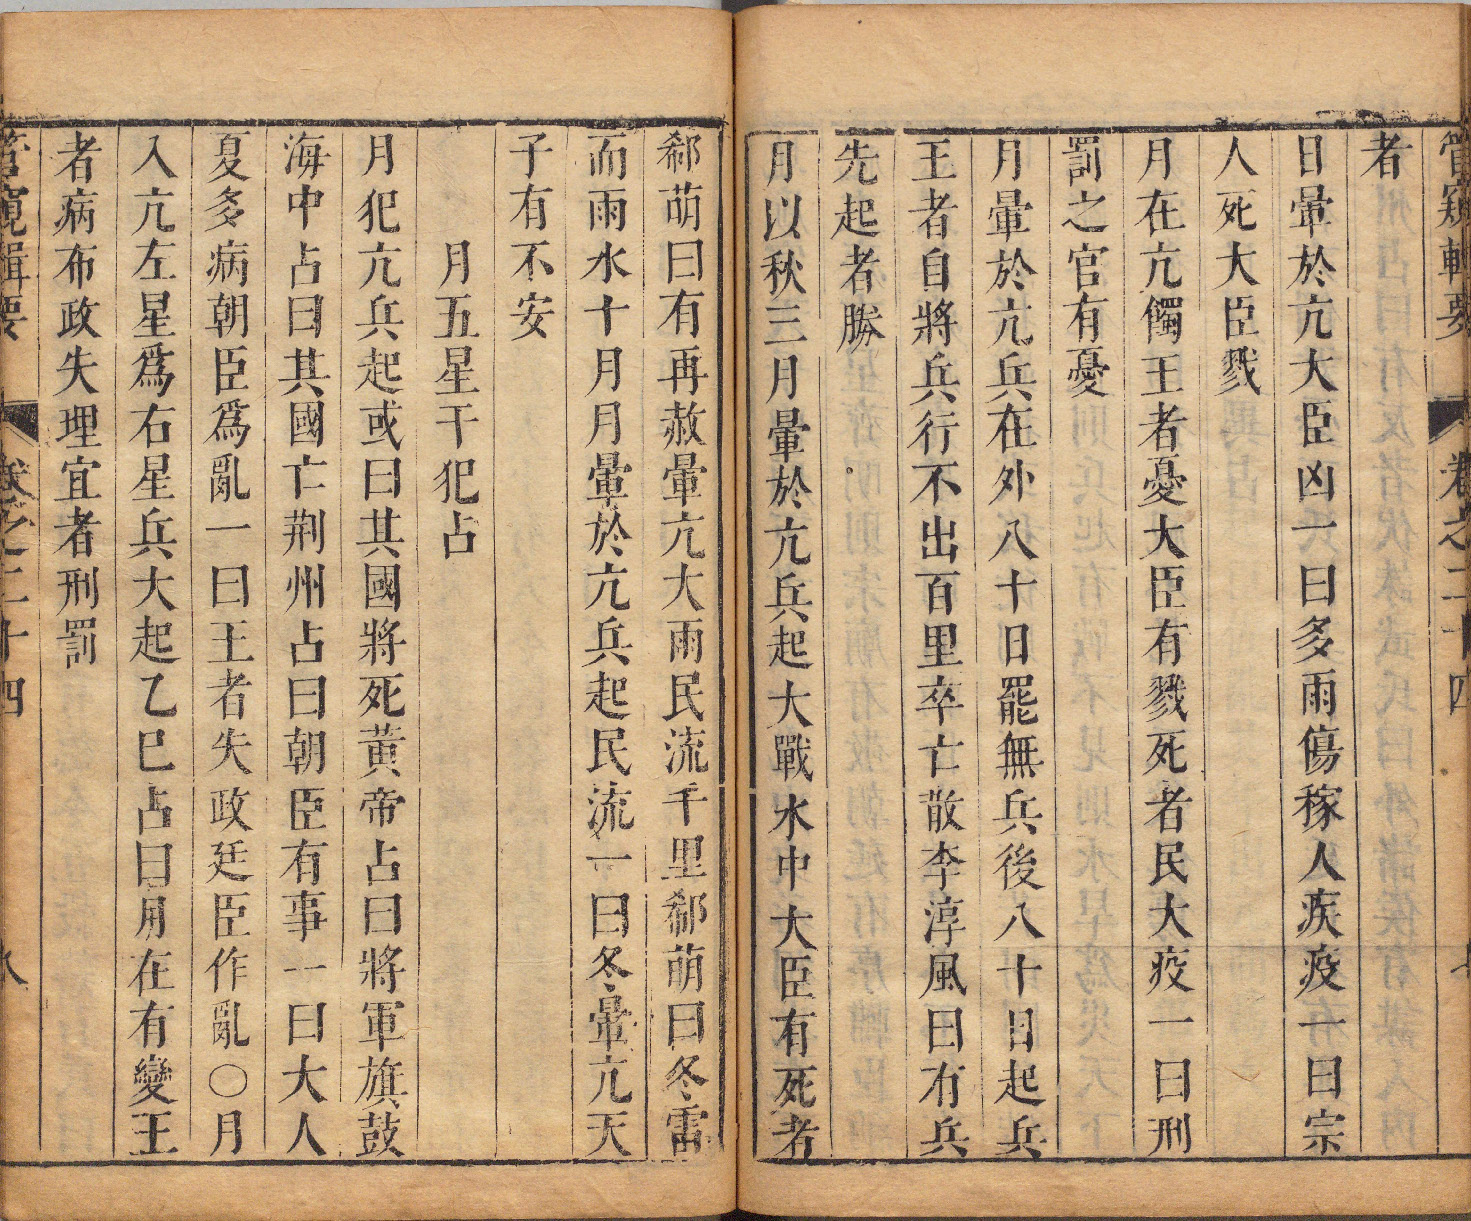 管窺輯要 卷之二十四 七
者
日暈於亢大臣凶一曰多雨傷稼人疾疫一曰宗
人死大臣戮
月在亢僪王者憂大臣有戮死者民大疫一曰刑
罰之官有憂
月暈於亢兵在外八十日罷無兵後八十日起兵
王者自將兵行不出百里卒亡散李淳風曰有兵
先起者勝
月以秋三月暈於亢兵起大戰水中大臣有死者
郗萌曰有再赦暈亢大雨民流千里郗萌曰冬雷
而雨水十月月暈於亢兵起民流一曰冬暈亢天
子有不安
月五星干犯占
月犯亢兵起或曰其國將死黃帝占曰將軍旗鼓
海中占曰其國亡荆州占曰朝臣有事一曰大人
夏多病朝臣爲亂一曰王者失政廷臣作亂○月
入亢左星爲右星兵大起乙巳占曰月在有變王
者病布政失理宜者刑罰
管窺輯要 卷之二十四 八